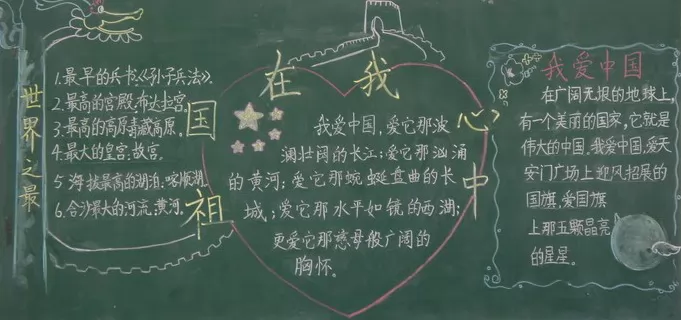 世界之最
1.最早的兵书:《孙子兵法》.
2.最高的宫殿:布达拉宫.
3.最高的高原:青藏高原.
4.最大的皇宫:故宫.
5 海拔最高的湖泊:喀顺湖.
6.含沙最大的河流:黄河.
祖国
在我
心中
我爱中国,爱它那波
澜壮阔的长江;爱它那汹涌
的黄河;爱它那蜿蜒盘曲的长
城;爱它那水平如镜的西湖;
更爱它那慈母般广阔的
胸怀。
我爱中国
在广阔无垠的地球上,
有一个美丽的国家,它就是
伟大的中国。我爱中国,爱天
安门广场上迎风招展的
国旗,爱国旗
上那五颗晶亮
的星星。